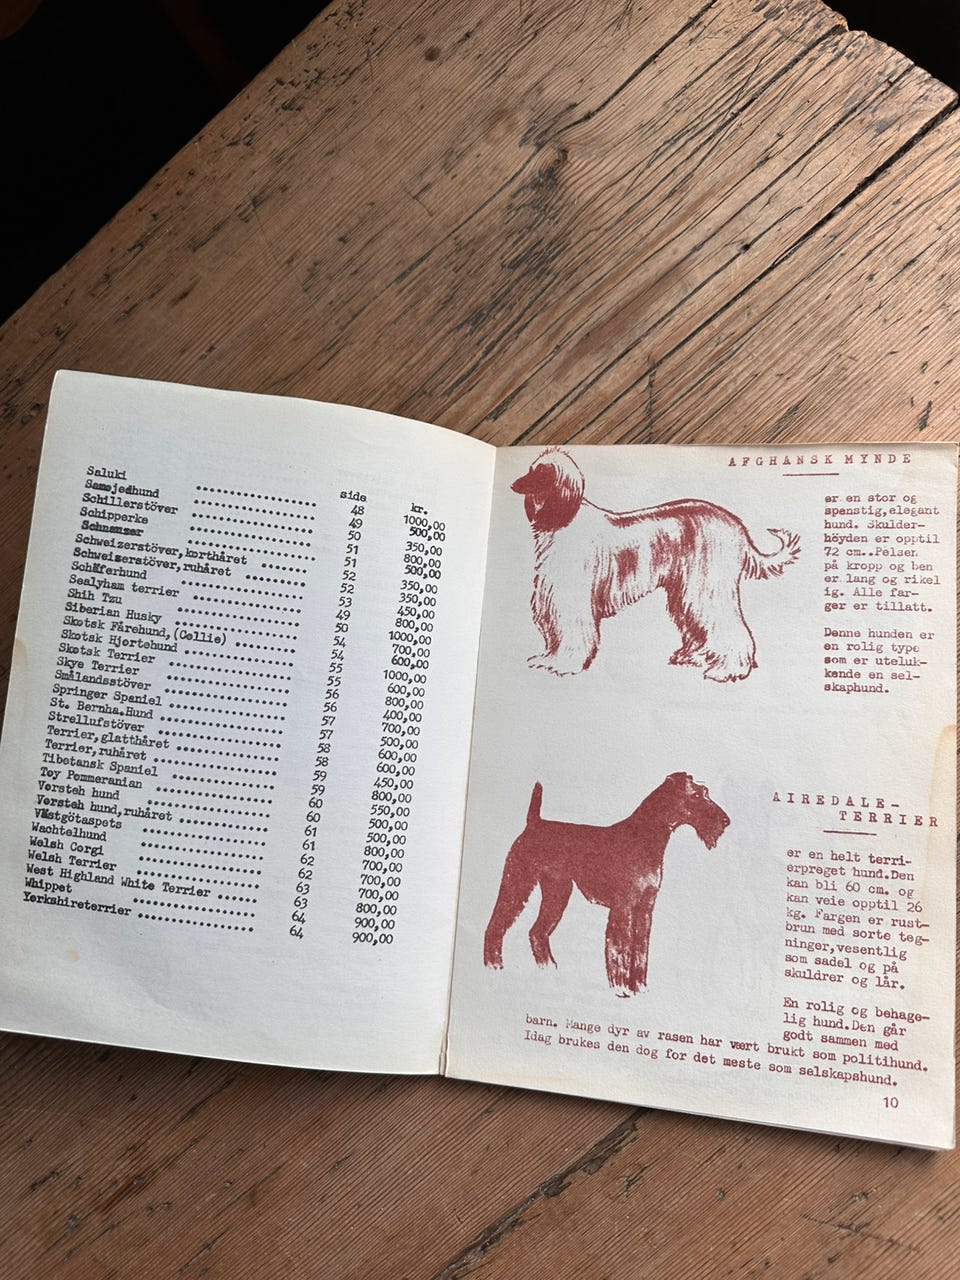 side kr.
Saluki .................... 48 1000,00
Samojedhund .................... 49 500,00
Schillerstöver .................... 50 350,00
Schipperke .................... 51 800,00
Schnauser .................... 51 500,00
Schweizerstöver,korthåret .......... 52 350,00
Schweizerstöver,ruhåret .......... 52 350,00
Schäferhund .................... 53 450,00
Sealyham terrier .................... 49 800,00
Shih Tzu .................... 50 1000,00
Siberian Husky .................... 54 700,00
Skotsk Fårehund,(Collie) .......... 54 600,00
Skotsk Hjortehund .................... 55 1000,00
Skotsk Terrier .................... 55 600,00
Skye Terrier .................... 56 800,00
Smålandsstöver .................... 56 400,00
Springer Spaniel .................... 57 700,00
St. Bernha.Hund .................... 57 500,00
Strellufstöver .................... 58 600,00
Terrier,glatthåret .................... 58 600,00
Terrier,ruhåret .................... 59 450,00
Tibetansk Spaniel .................... 59 800,00
Toy Pommeranian .................... 60 550,00
Vorsteh hund .................... 60 500,00
Vorsteh hund,ruhåret .................... 61 500,00
Västgötaspets .................... 61 800,00
Wachtelhund .................... 62 700,00
Welsh Corgi .................... 62 700,00
Welsh Terrier .................... 63 700,00
West Highland White Terrier ....... 63 800,00
Whippet .................... 64 900,00
Yorkshireterrier .................... 64 900,00
AFGHANSK MYNDE
er en stor og
spenstig,elegant
hund. Skulder-
höyden er opptil
72 cm..Pelsen
på kropp og ben
er lang og rikel
ig. Alle far-
ger er tillatt.
Denne hunden er
en rolig type
som er uteluk-
kende en sel-
skaphund.
AIREDALE-
TERRIER
er en helt terri-
erpreget hund.Den
kan bli 60 cm. og
kan veie opptil 26
kg. Fargen er rust-
brun med sorte teg-
ninger,vesentlig
som sadel og på
skuldrer og lår.
En rolig og behage-
lig hund.Den går
godt sammen med
barn. Mange dyr av rasen har vært brukt som politihund.
Idag brukes den dog for det meste som selskapshund.
10